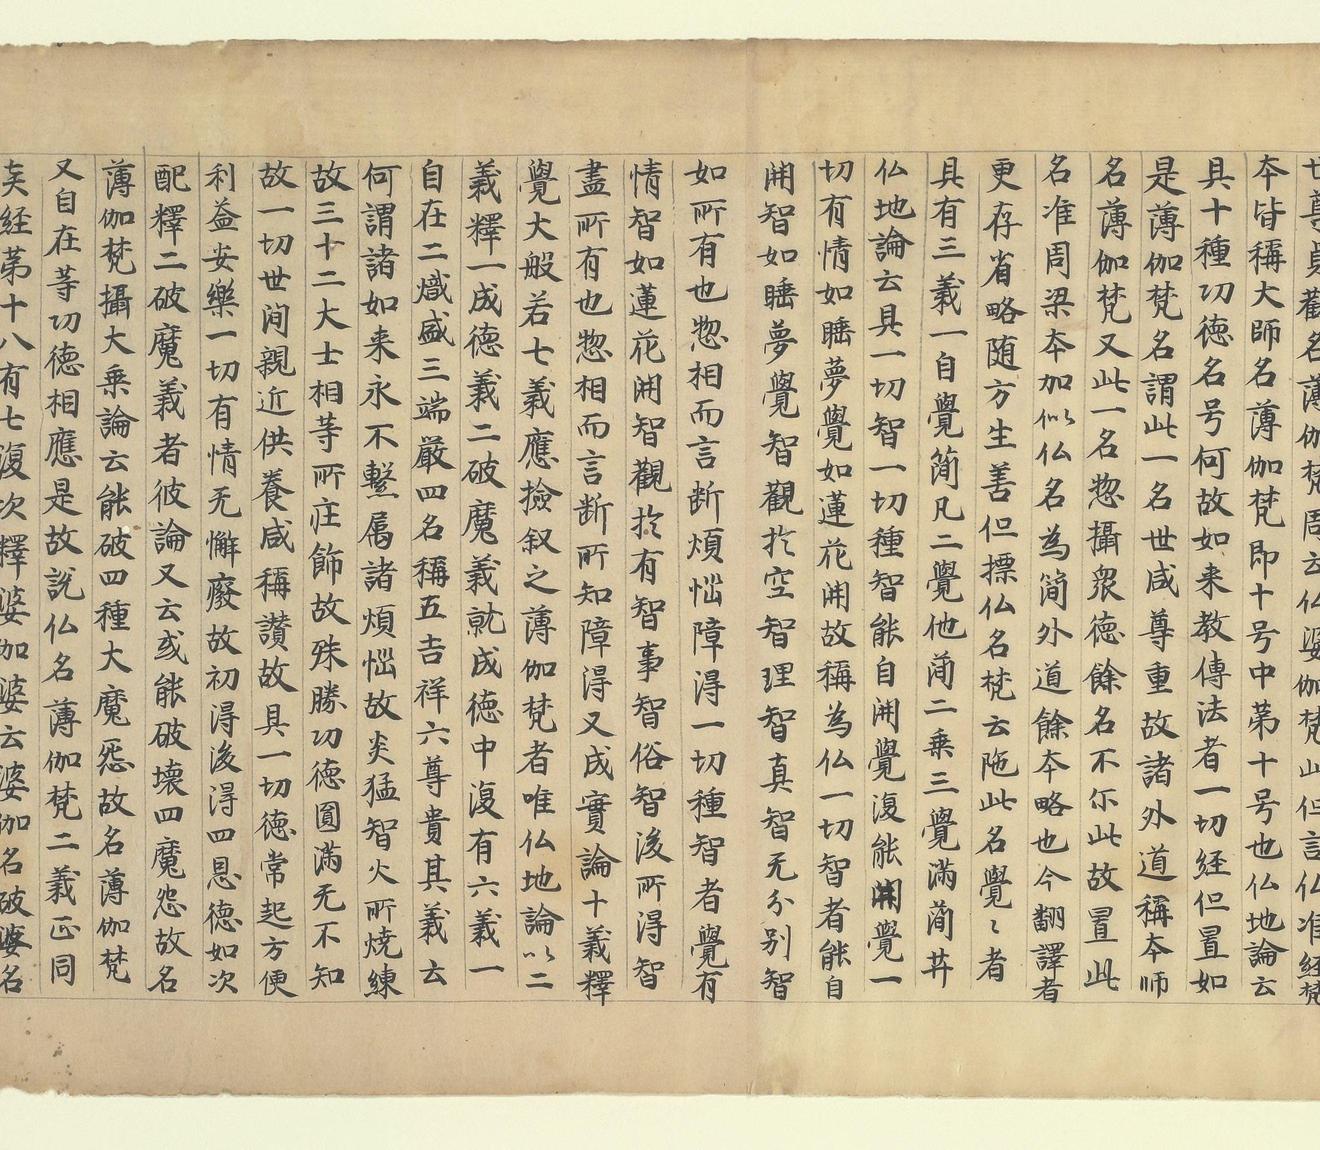 世尊貞觀名薄伽梵周云仏婆伽梵此但言仏准経梵
夲皆稱大師名薄伽梵即十号中第十号也仏地論云
具十種功徳名号何故如来教傳法者一切経但置如
是薄伽梵名謂此一名世咸尊重故諸外道稱夲師
名薄伽梵又此一名惣攝衆徳餘名不尓此故置此
名准周梁夲加以仏名為簡外道餘夲略也今翻譯者
更存省略随方生善但摽仏名梵云陁此名覺〻者
具有三義一自覺簡凡二覺他蕳二乗三覺滿蕳井
仏地論云具一切智一切種智能自開覺復能開覺一
切有情如睡夢覺如蓮花開故稱為仏一切智者能自
開智如睡夢覺智觀扵空智理智真智无分別智
如所有也惣相而言断煩惱障淂一切種智者覺有
情智如蓮花開智觀扵有智事智俗智後所淂智
盡所有也惣相而言断所知障淂又成實論十義釋
覺大般若七義應撿叙之薄伽梵者唯仏地論以二
義釋一成徳義二破魔義就成徳中復有六義一
自在二熾盛三端嚴四名稱五吉祥六尊貴其義云
何謂諸如来永不繫属諸煩惱故炎猛智火所燒練
故三十二大士相䓁所庄飾故殊勝功徳圓滿无不知
故一切世间親近供養咸稱讃故具一切徳常起方便
利益安樂一切有情无懈廢故初淂後淂四恩徳如次
配釋二破魔義者彼論又云或能破壊四魔怨故名
薄伽梵攝大乗論云能破四種大魔惌故名薄伽梵
又自在等功徳相應是故説仏名薄伽梵二義正同
矣経第十八有七復次釋婆伽婆云婆伽名破婆名